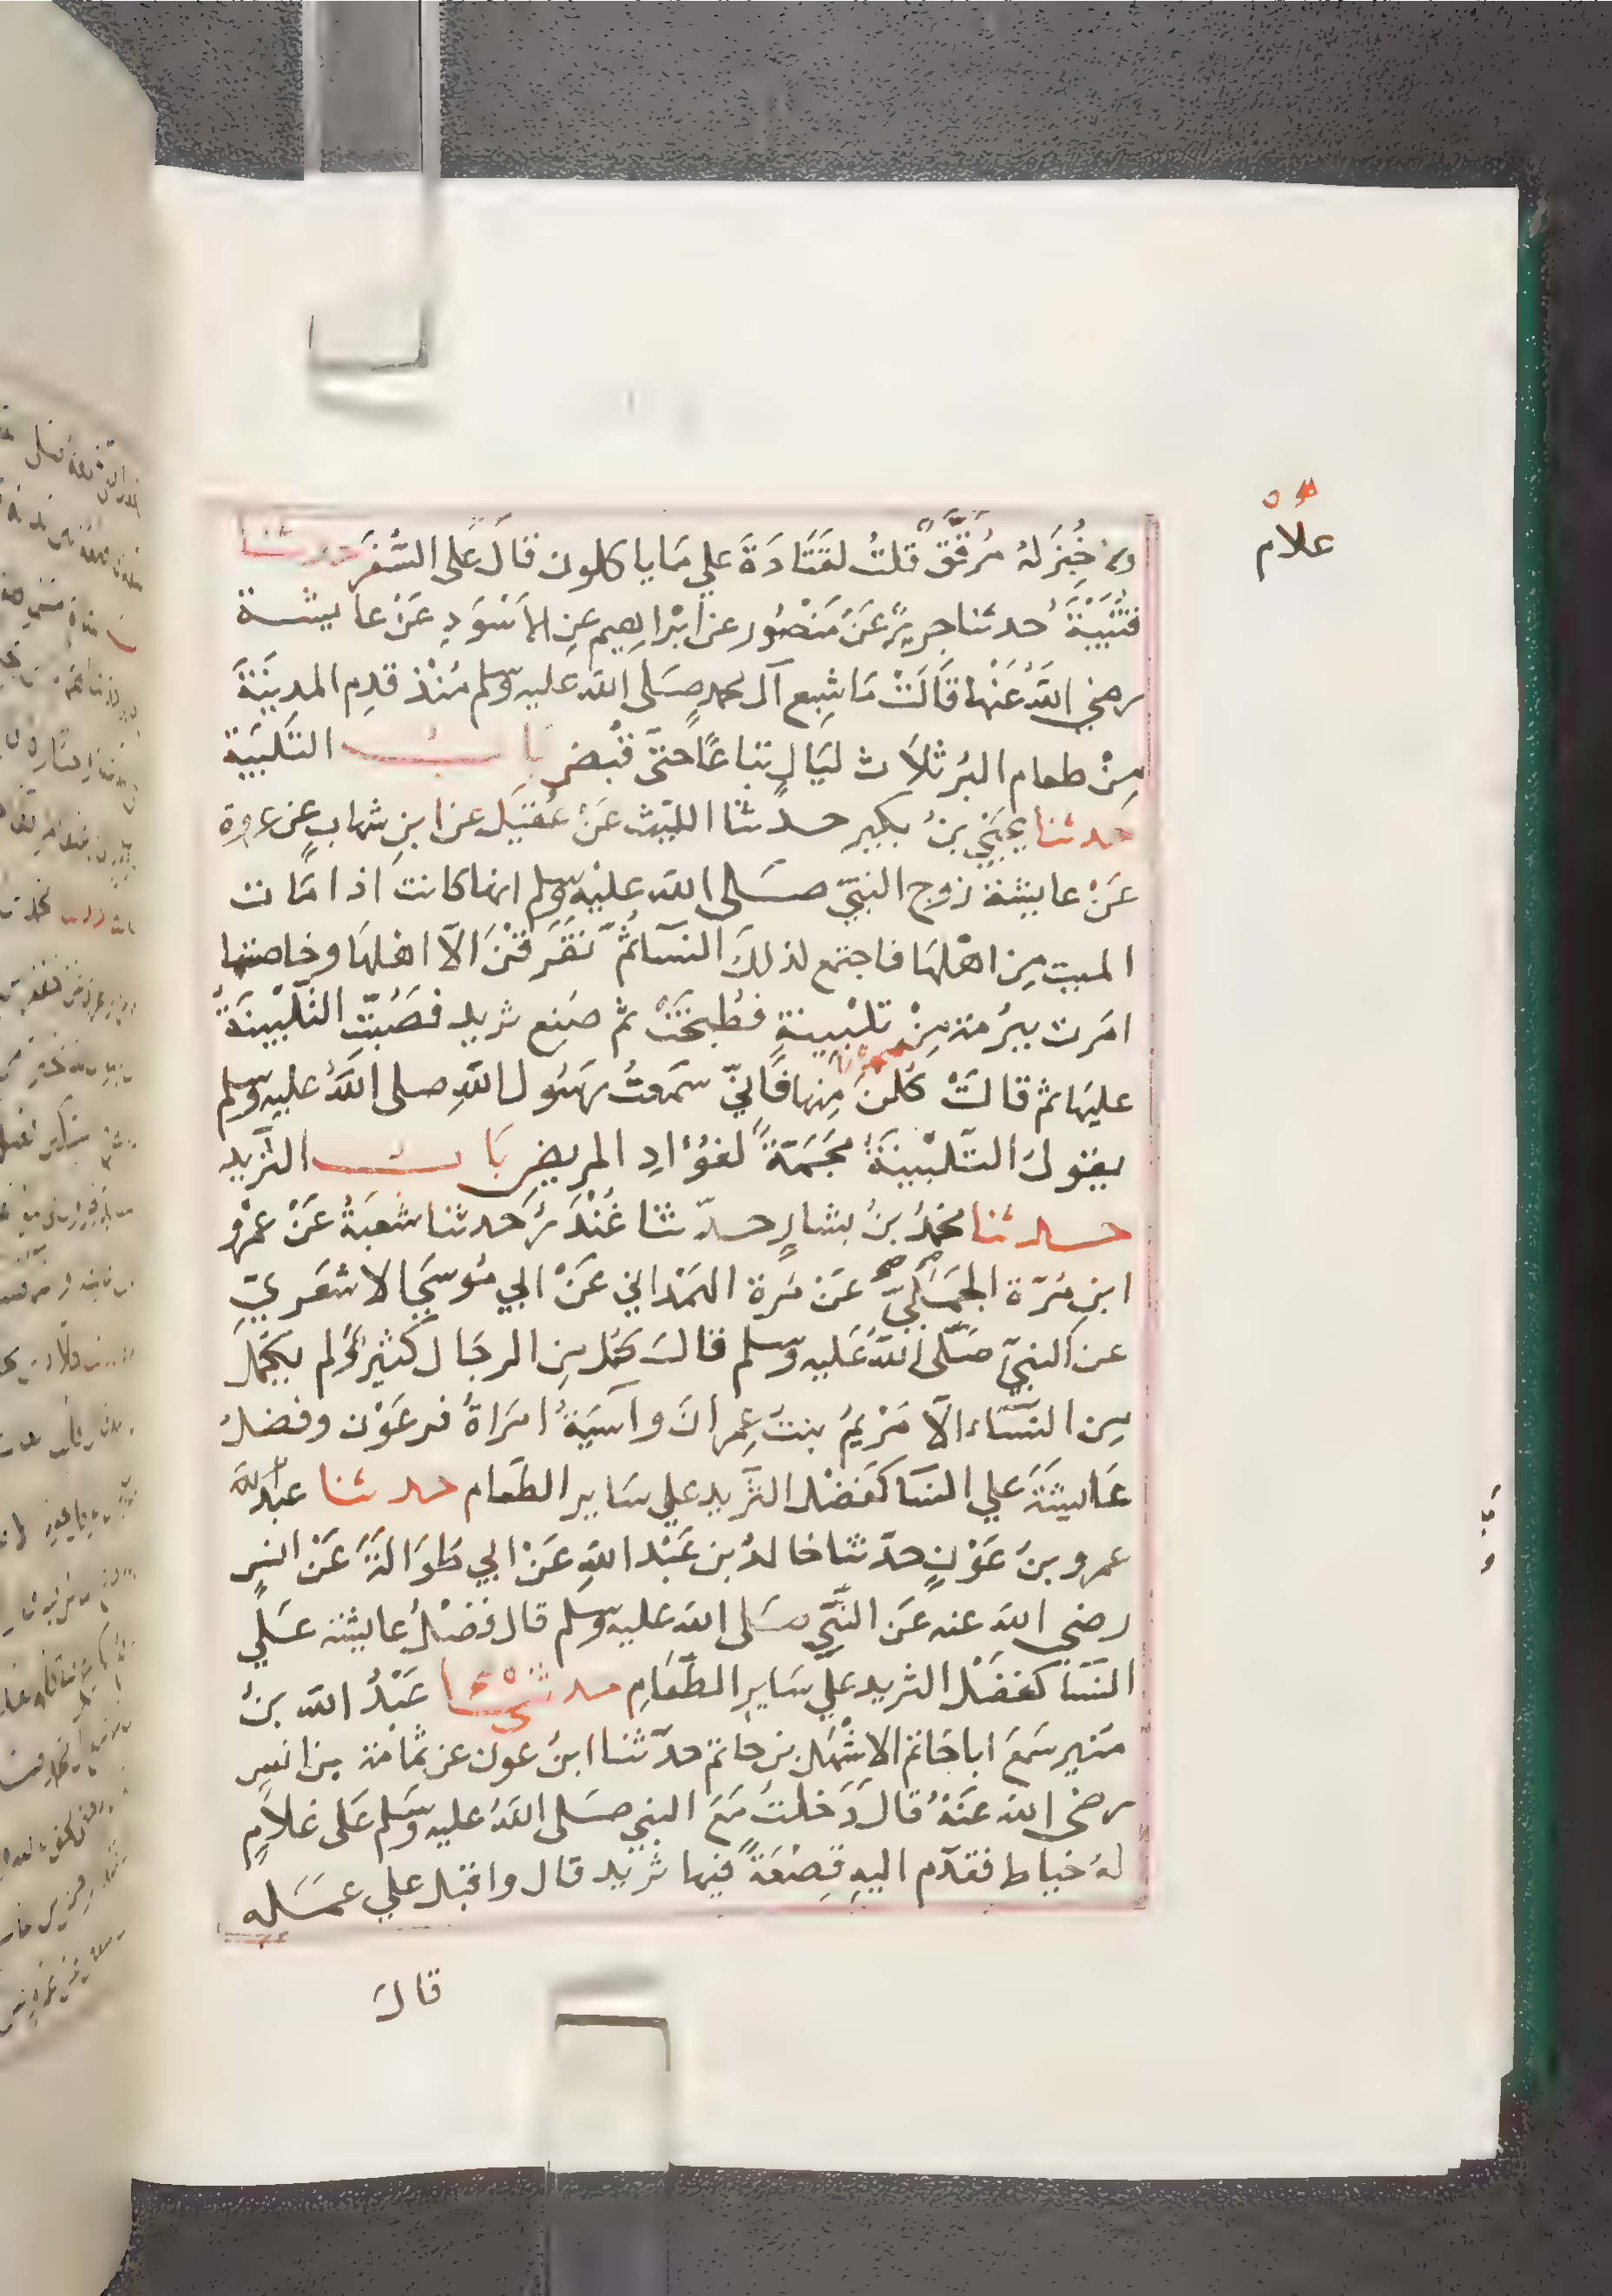 ولا خُبِزَ لهُ مُرَقَّقٌ قلتُ لقَتَادَةَ علي مَا ياكلون قالَ عَلى السُّفَرِ حدثنا
قُتَيْبَةُ حدثنا جريرٌ عَنْ مَنْصُور عن ابْراهيم عنِ الاَسْوَدِ عَنْ عايشة
رضي اللهُ عَنْها قَالَتْ مَا شبِع آلُ محمدٍ صَلى الله عليه وسلم مُنْذ قدِم المدينَةَ
مِنْ طعام البُر ثلاَث ليَالٍ تباعًا حتىَّ قُبُض بَاب التَلبينة
حدثنا يحيَي بنُ بكير حدثنا الليث عَنْ عُقَيل عن ابنِ شهابٍ عن عروة
عَنْ عايشة زوج النبيّ صَلى الله عليْه وسلم انها كانت اذا مَات
الميت مِن اهْلهَا فاجتمع لذلكَ النسَآ ثمَّ تفَرَقْنَ الاّ اهْلهَا وخاصتها
امَرت ببُرمة مِنْ تلْبينةٍ فطُبِخَتْ ثم صُنِع ثريد فصُبّت التَّلْبينَةُ
عليهَا ثم قالتْ كُلنَ مِنها فَانيّ سَمعتُ رسُول اللهِ صلى اللهُ عليه وسلم
يقولُ التَّلبْينَةُ مَجَمَّةٌ لفؤُادِ المريضِ بَاب الثريد
حدثنا محمّدُ بنُ بشارٍ حدّثنا غُنْدَرٌ حَدثنا شعبَةُ عَنْ عمْرو
ابنِ مُرّة الجَمَليّ عَنْ مُرة الهمْداني عَنْ ابي مُوسَي الاشعَريّ
عن النبيّ صَلّى اللهُ عَليه وسلم قالَ كَمُل مِن الرجَال كثيرٌ ولم يكمُل
مِن النسَاء الاّ مَرْيمُ بنتُ عِمرانَ وآسيَةُ امرَاةُ فرعَوْن وفضلُ
عَايشَةَ علي النسَا كَفضْل الثرَيد علي سَاير الطعَام حدثنا عبدالله
عمرو بنُ عَوْنٍ حدّثنا خالدُ بن عَبْد اللهِ عَنْ ابي طُوَالَةَ عَنْ انسٍ
رضي الله عنه عَن النّبيّ صَلى الله عليه وسلم قال فَضْلُ عايشة عَلي
النسَا كفضْل الثريد علي سَاير الطّعَامِ حدثني عَبْدُ الله بنُ
منير سَمعَ ابا حَاتم الاشْهَل بن حاتم حدّثنا ابنُ عون عن ثمُامة بن انسٍ
رضي الله عنَهُ قال دَخلتُ مَعَ النبي صَلى اللهُ عليه وسَلم عَلى غلاَمٍ
لهُ خياط فقدّم اليهِ قصْعَةً فيها ثريد قال واقبَل علي عمَله
قالَ
غلام